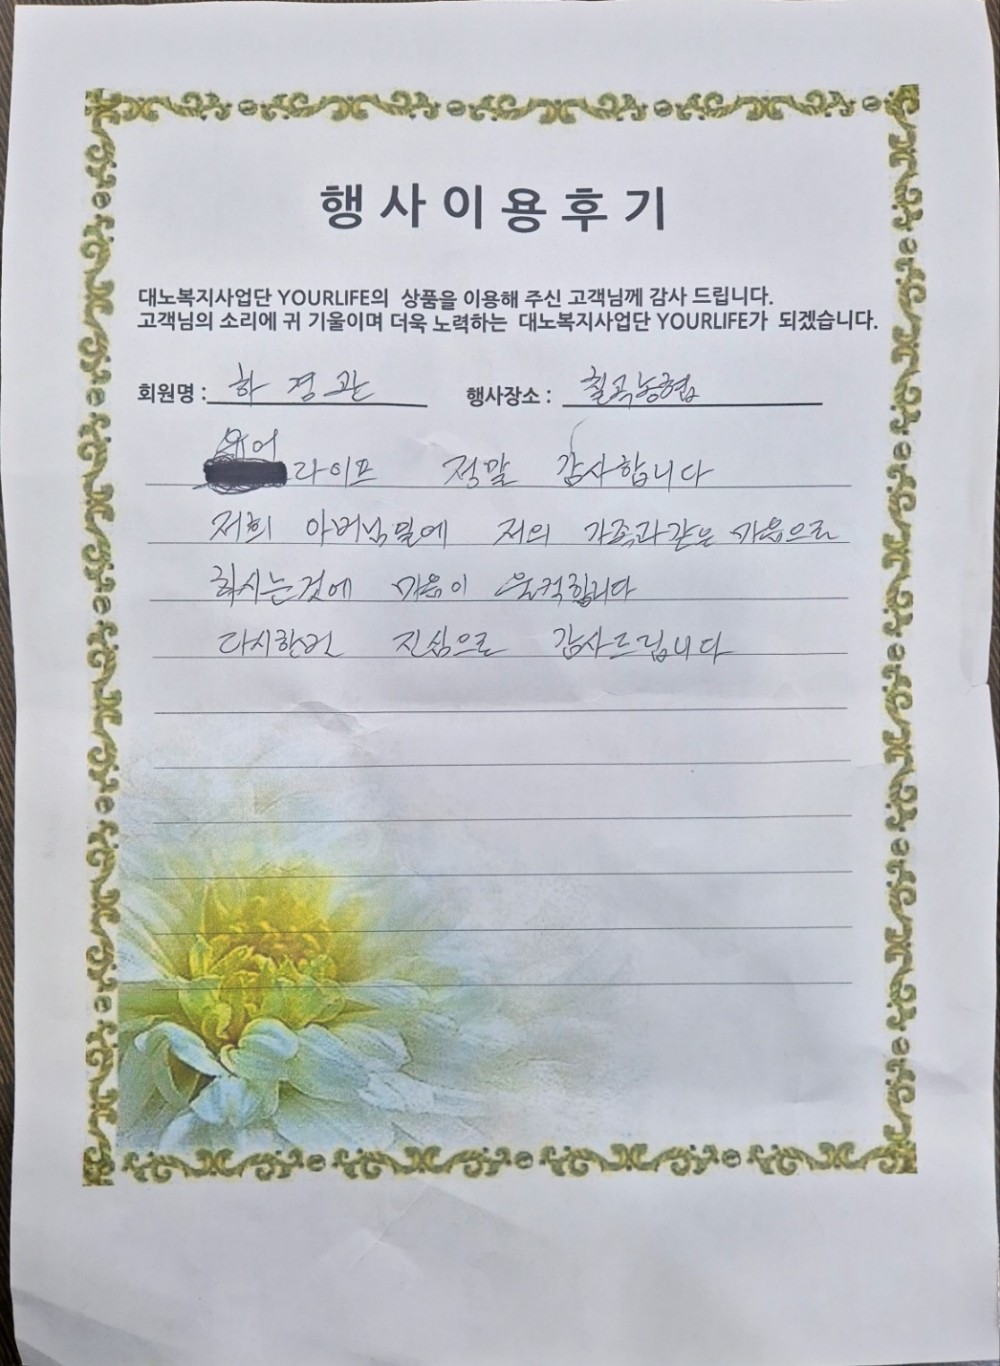 행사이용후기
대노복지사업단 YOURLIFE의 상품을 이용해 주신 고객님께 감사 드립니다.
고객님의 소리에 귀 기울이며 더욱 노력하는 대노복지사업단 YOURLIFE가 되겠습니다.
회원명 : 하경관 행사장소 : 칠곡농협
유어
라이프 정말 감사합니다
저희 아버님일에 저의 가족과같은 마음으로
하시는것에 마음이 울컥합니다
다시한번 진심으로 감사드립니다